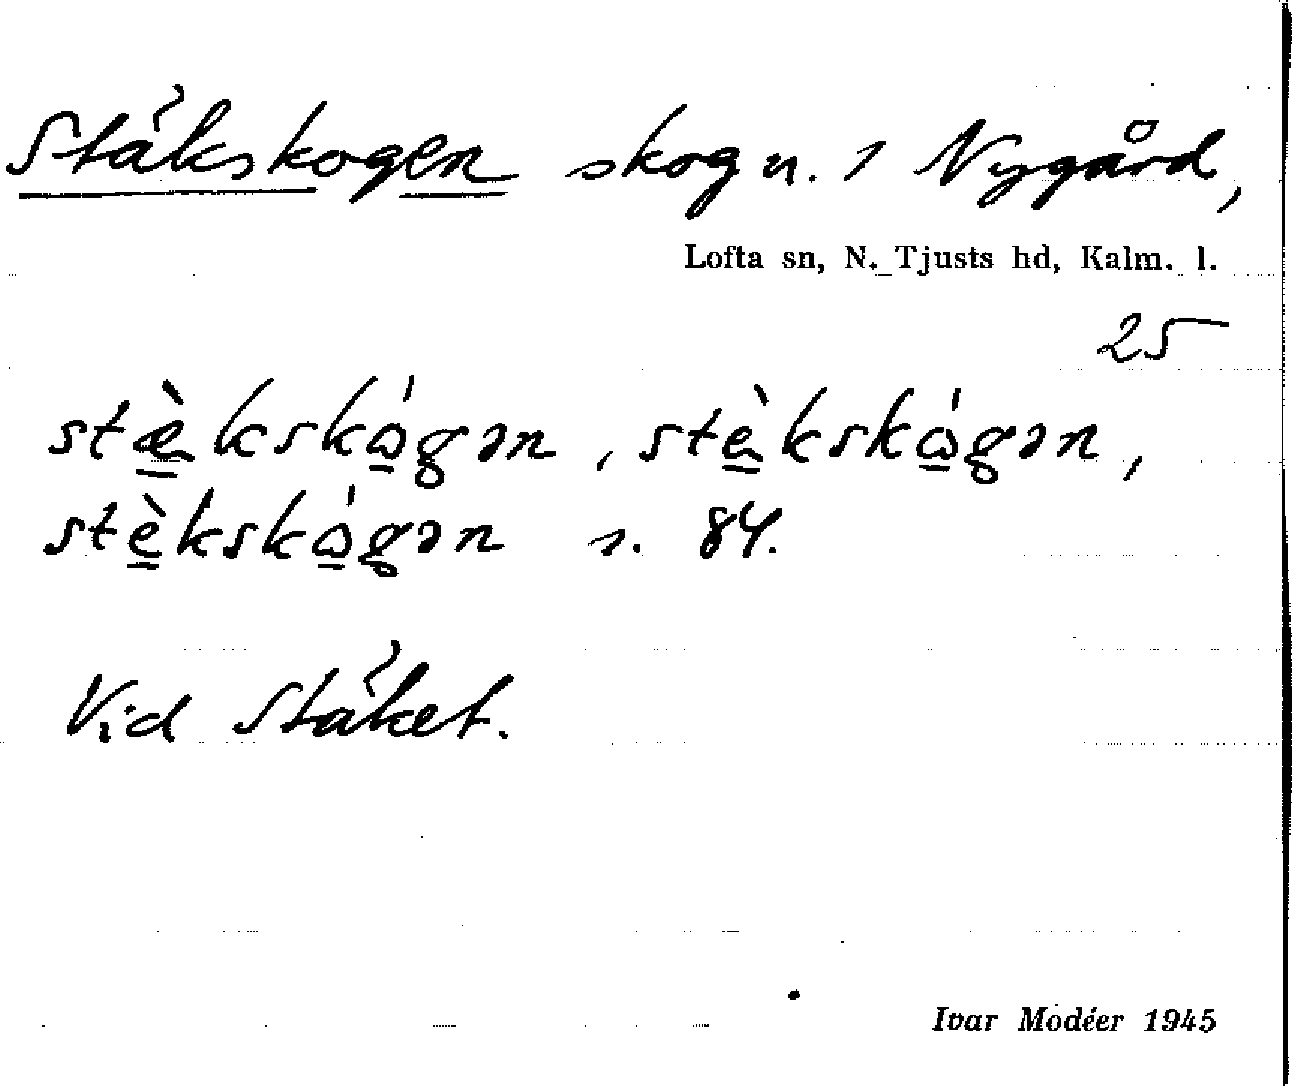 Stäkskogen skog n. 1 Nygård,
Lofta sn, N. Tjusts hd, Kalm. l.
25
stæ̀kskó̱gən, stèkskó̱gən,
stèkskó̱gən s. 84.
Vid Stäket.
Ivar Modéer 1945